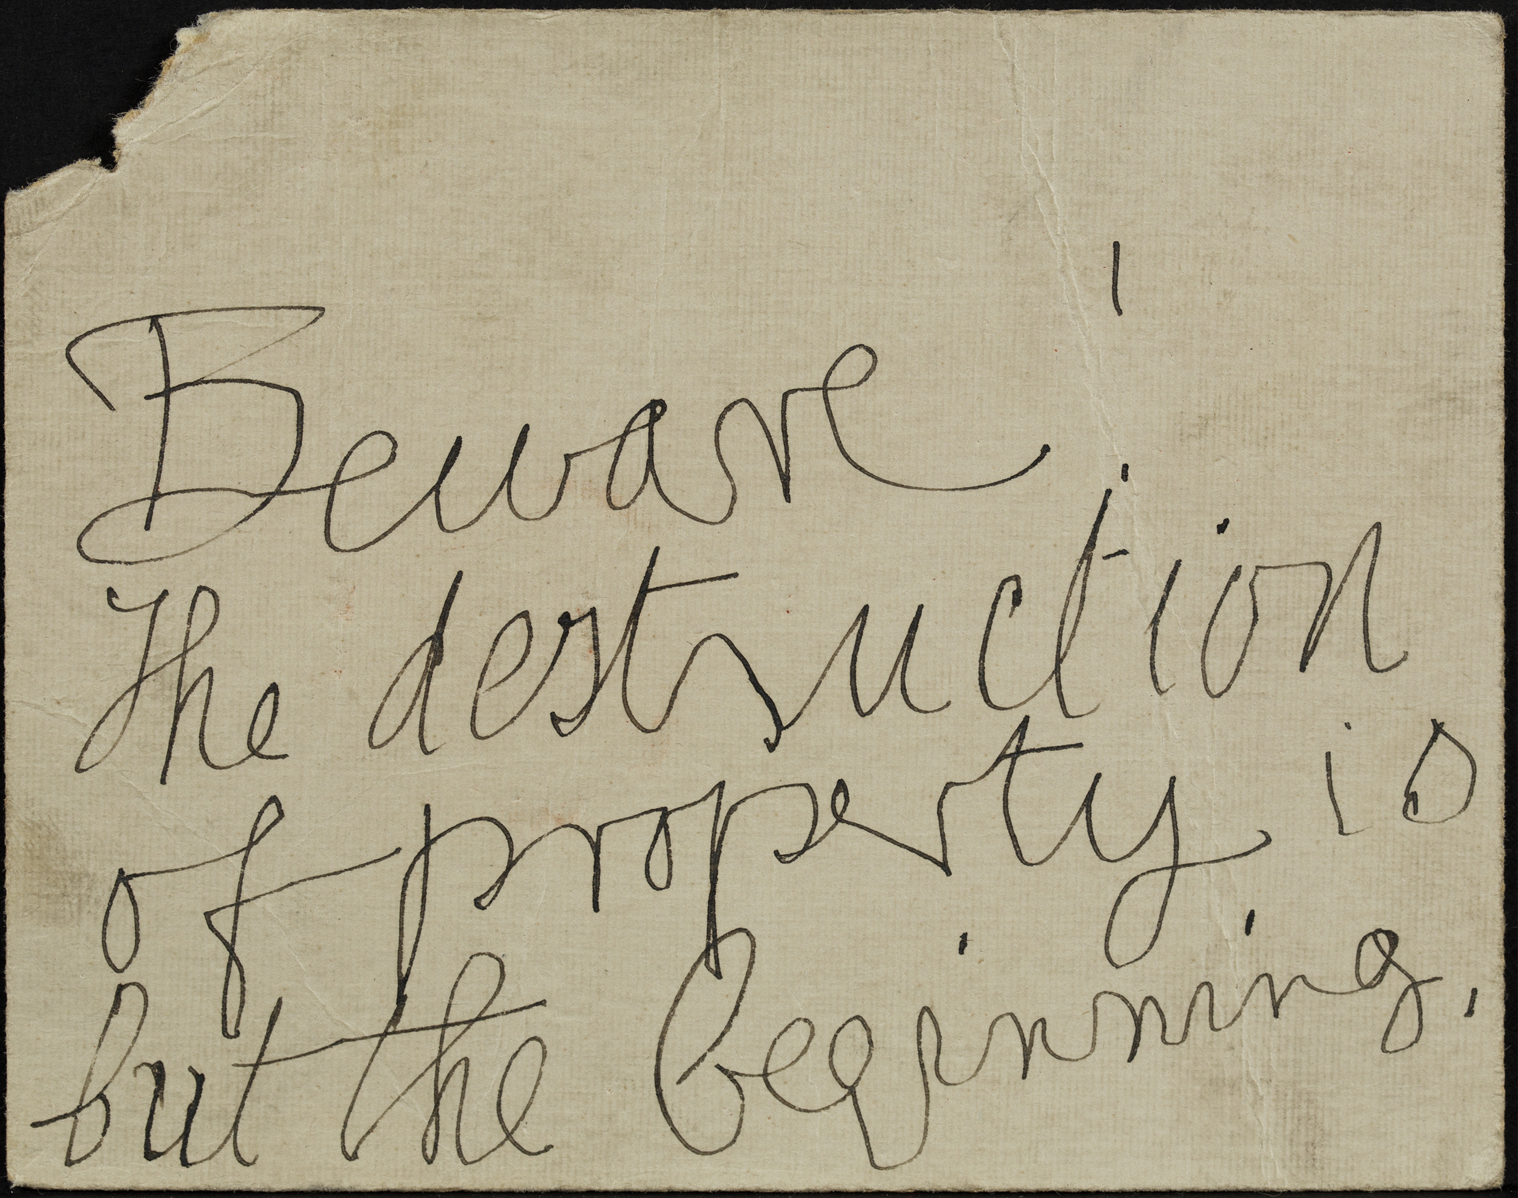 Beware!
The destruction
of property is
but the beginning.